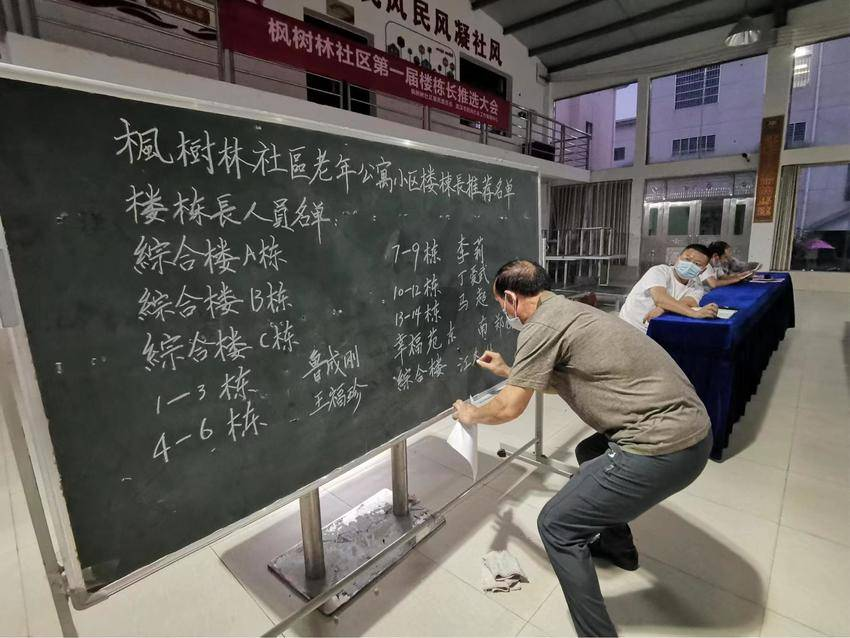 民风民风凝社风
枫树林社区第一届楼栋长推选大会
楓樹林社區老年公寓小区楼栋長推荐名单
楼栋長人員名单:
綜合楼A栋
綜合楼B栋
綜合楼C栋
1-3栋 鲁成刚
4-6栋 王福珍
7-9栋 李莉
10-12栋 丁爱武
13-14栋 马超
幸福苑东 南
綜合楼 江